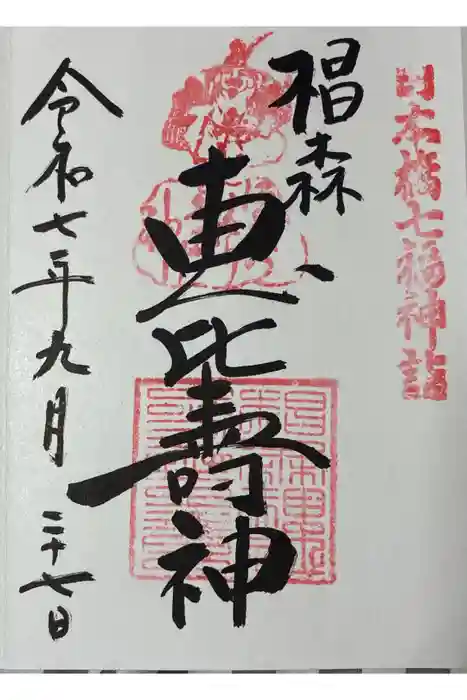 日本橋七福神詣
椙森
恵比壽神
令和七年九月二十七日